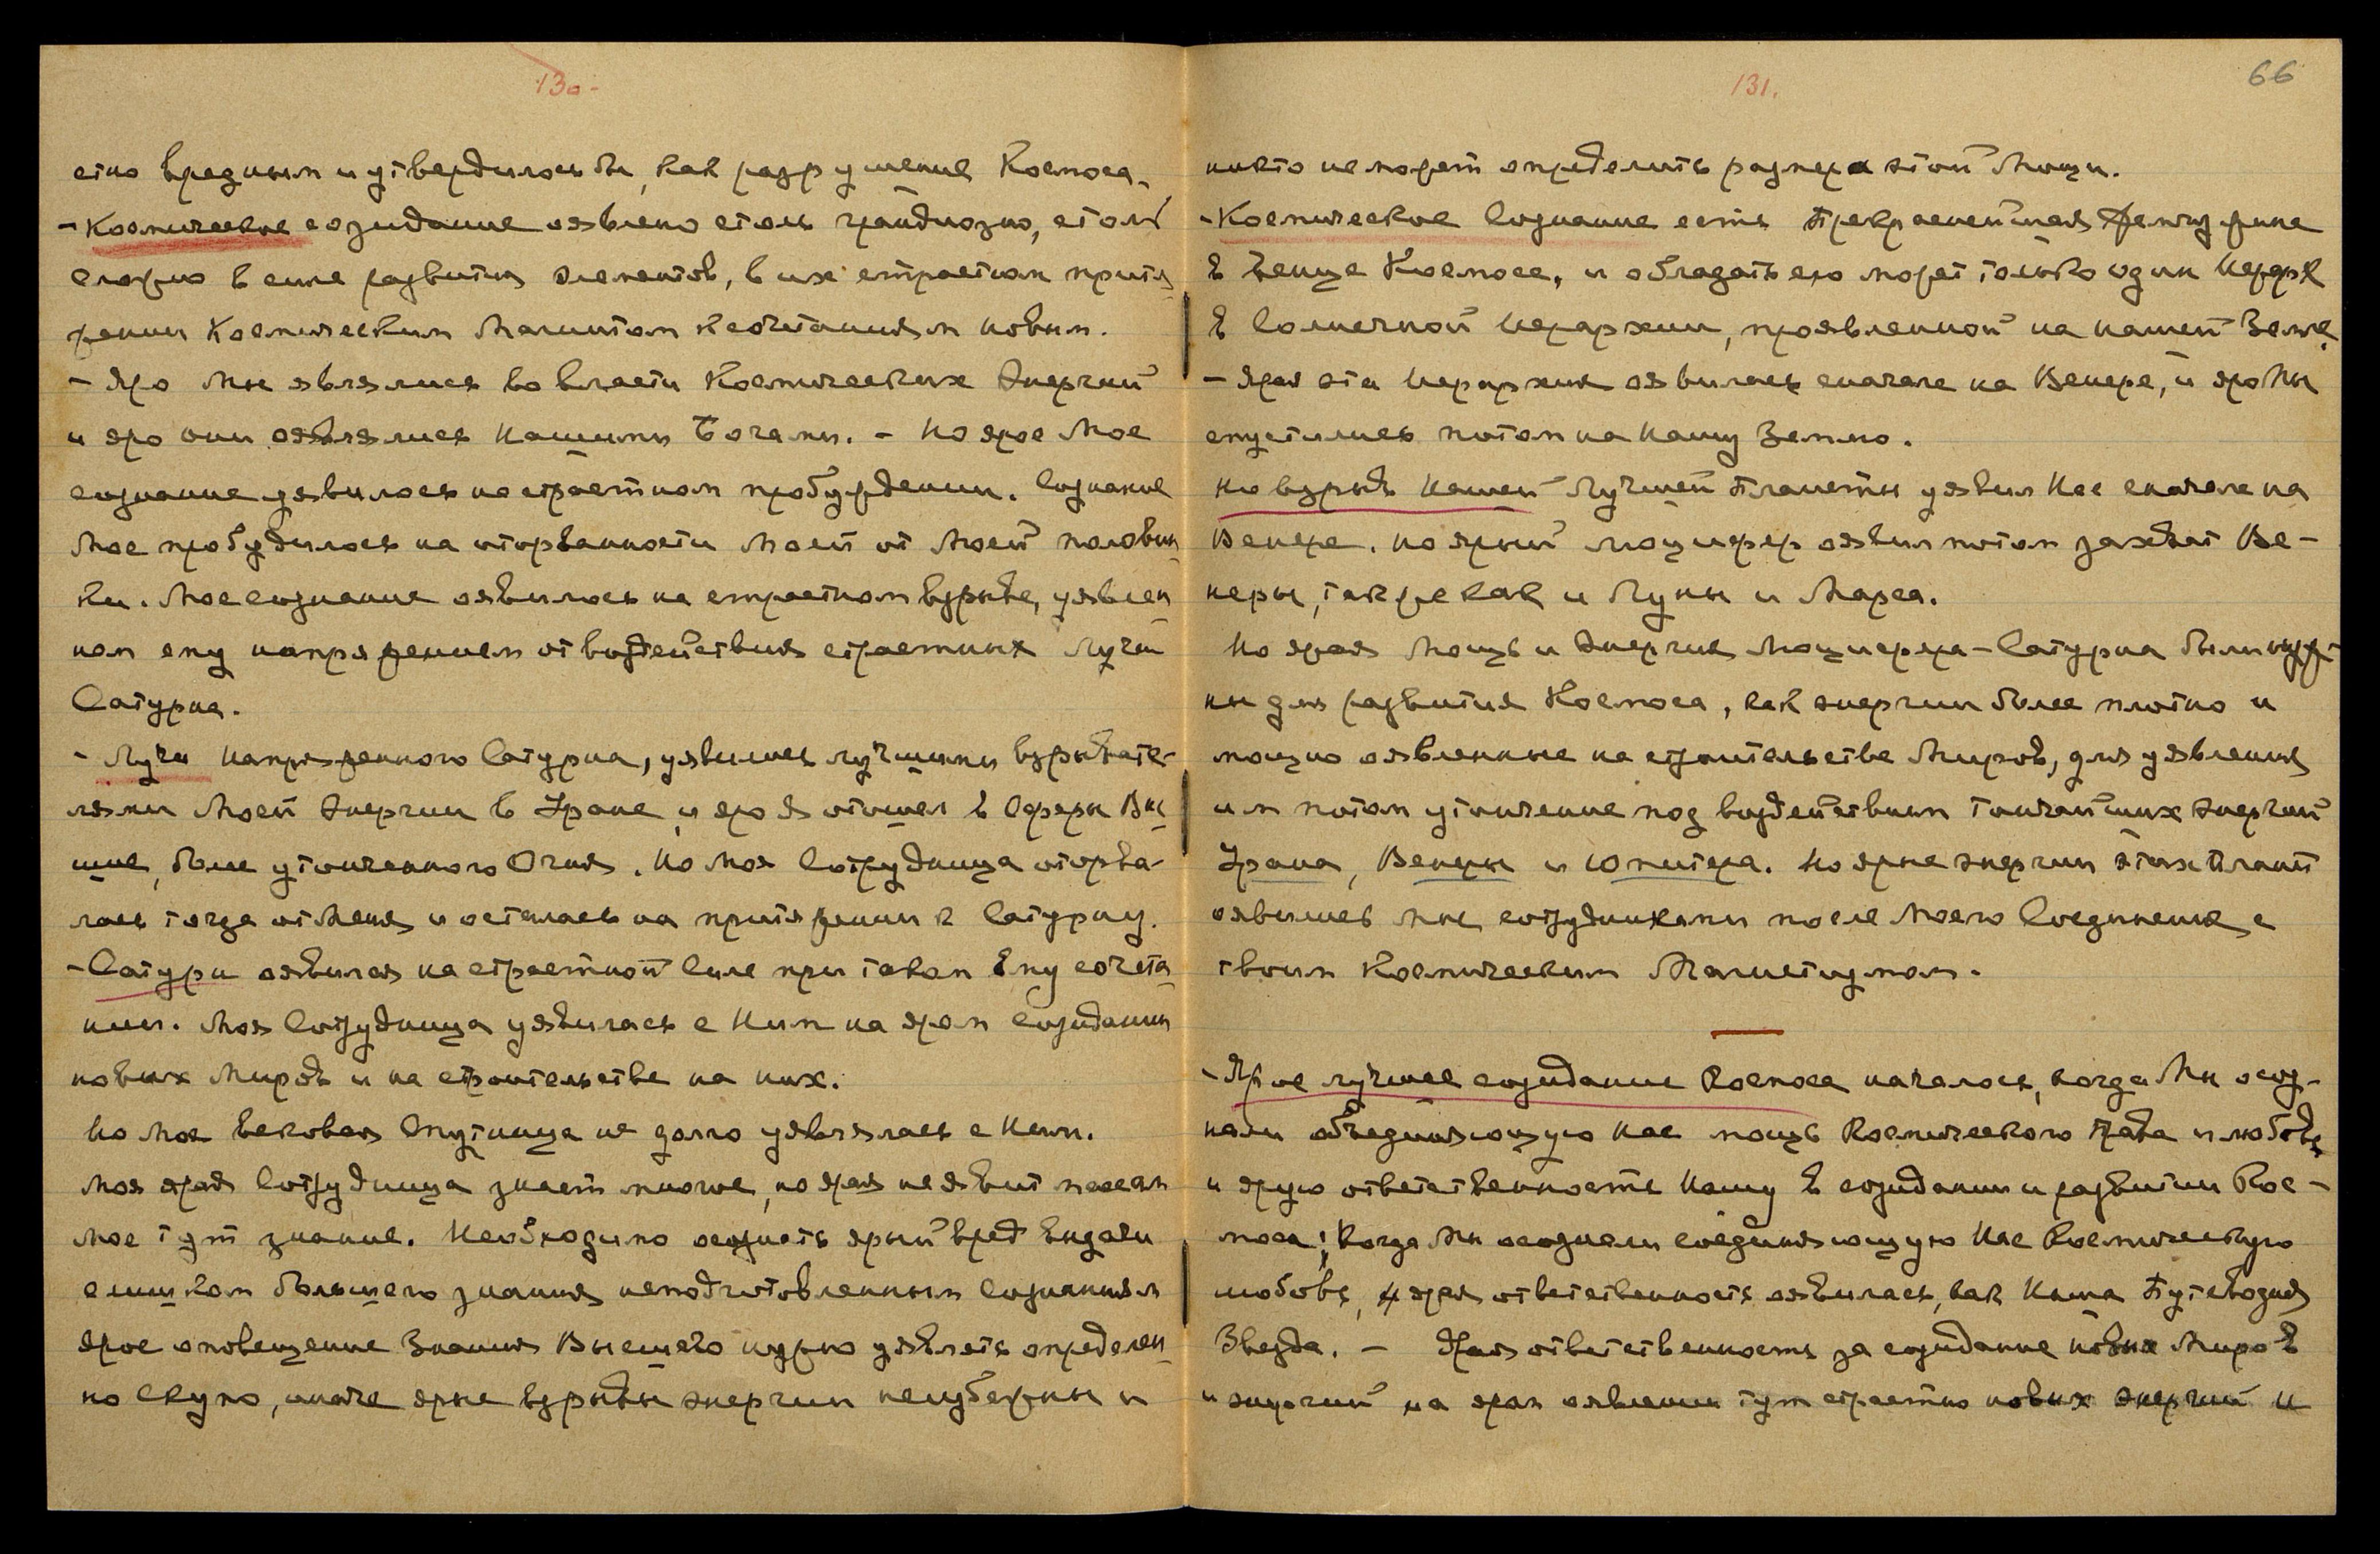 130.
стно вредным и утвердилось бы, как разрушение Космоса.
- Космическое созидание оявлено столь грандиозно, столь
сложно в силе развития элементов, в их страстном притя-
жении Космическим Магнитом к сочетаниям новым.
- Яро Мы являлися во власти Космических Энергий
и яро они оявлялися Нашими Богами. - Но ярое Мое
сознание уявилось на страстном пробуждении. Сознание
Мое пробудилось на оторванности Моей от Моей половин-
ки. Мое сознание оявилось на страстном взрыве, уявлен-
ном ему напряжением от воздействия страстных Лучей
Сатурна.
- Лучи напряженного Сатурна, уявились лучшими взрывате-
лями Моей Энергии в Уране, и яро Я отошел в Сферы Вы-
шие, более утонченного Огня. Но Моя Сотрудница оторва-
лась тогда от Меня и осталась на притяжении к Сатурну.
- Сатурн оявился на страстной Силе при таком Ему сочета-
нии. Моя Сотрудница уявилась с Ним на яром созидании
новых Миров и на строительстве на них.
Но Моя вековая Спутница не долго уявлялась с Ним.
Моя ярая Сотрудница знает многое, но ярая не явит
Мое тут знание. Необходимо осознать ярый вред выдачи
слишком большего знания неподготовленным сознаниям
ярое оповещение Знания Высшего нужно уявлять определен-
но скупо, иначе ярые взрывы энергии неизбежны и
131.
66
никто не может определить размера этой Мощи.
- Космическое Сознание есть Прекраснейшая Жемчужина
в Венце Космоса, и обладать ею может только один Иерарх
в Солнечной Иерархии, проявленной на нашей Земле.
- Ярая эта Иерархия оявилась сначала на Венере, и яро Мы
спустились потом на Нашу Землю.
Но взрыв Нашей Лучшей Планеты уявил Нас сначала на
Венере. Но ярый Люцифер оявил потом захват Ве-
неры, так же как и Луны и Марса.
Но ярая Мощь и Энергия Люцифера - Сатурна были нуж-
ны для развития Космоса, как энергии более плотно и
мощно оявленные на строительстве Миров, для уявления
им потом утончения под воздействием тончайших Энергий
Урана, Венеры и Юпитера. Но ярые энергии этих Планет
оявились Мне сотрудниками после Моего Соединения с
твоим Космическим Магнетизмом.
- Ярое лучшее созидание Космоса началось, когда Мы осоз-
нали объединяющую Нас мощь Космического Права и любовь
и ярую ответственность Нашу в созидании и развитии Кос-
моса; Когда Мы осознали соединяющую Нас Космическую
любовь, и ярая ответственность оявилась, как Наша Путеводная
Звезда. - Ярая ответственность за созидание новых Миров
и энергий на яром оявлении тут страстно новых энергий и